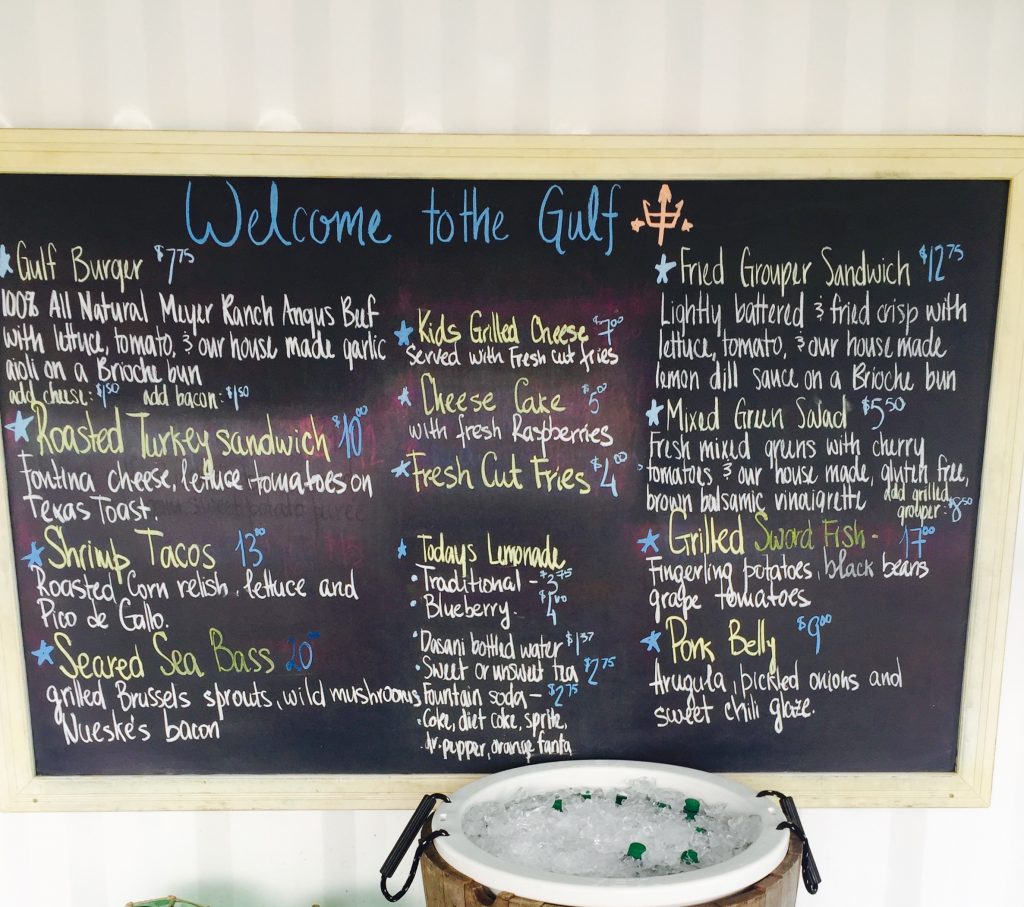 Welcome to the Gulf
Gulf Burger $7.75
100% All Natural Meyer Ranch Angus Beef
with lettuce, tomato, & our house made garlic
aioli on a Brioche bun
add cheese: $1.50 add bacon: $1.50
Roasted Turkey sandwich $10.00
Fontina cheese, lettuce, tomatoes on
Texas Toast.
Shrimp Tacos 13.00
Roasted Corn relish, lettuce and
Pico de Gallo.
Seared Sea Bass 20
grilled Brussels sprouts, wild mushrooms
Nueske's bacon
Kids Grilled Cheese $7.00
Served with Fresh cut fries
Cheese Cake $5.00
with fresh Raspberries
Fresh Cut Fries $4.00
Todays Lemonade
• Traditional - $3.75
• Blueberry.
• Dasani bottled water $1.37
• Sweet or unsweet tea $2.75
Fountain soda - $2.75
• Coke, diet coke, sprite,
dr. pepper, orange fanta
Fried Grouper Sandwich $12.75
Lightly battered & fried crisp with
lettuce, tomato, & our house made
lemon dill sauce on a Brioche bun
Mixed Green Salad $5.50
Fresh mixed greens with cherry
tomatoes & our house made, gluten free,
brown balsamic vinaigrette add grilled
grouper: $8.50
Grilled Sword Fish - 17.00
Fingerling potatoes, black beans
grape tomatoes
Pork Belly $9.00
Arugula, pickled onions and
sweet chili glaze.